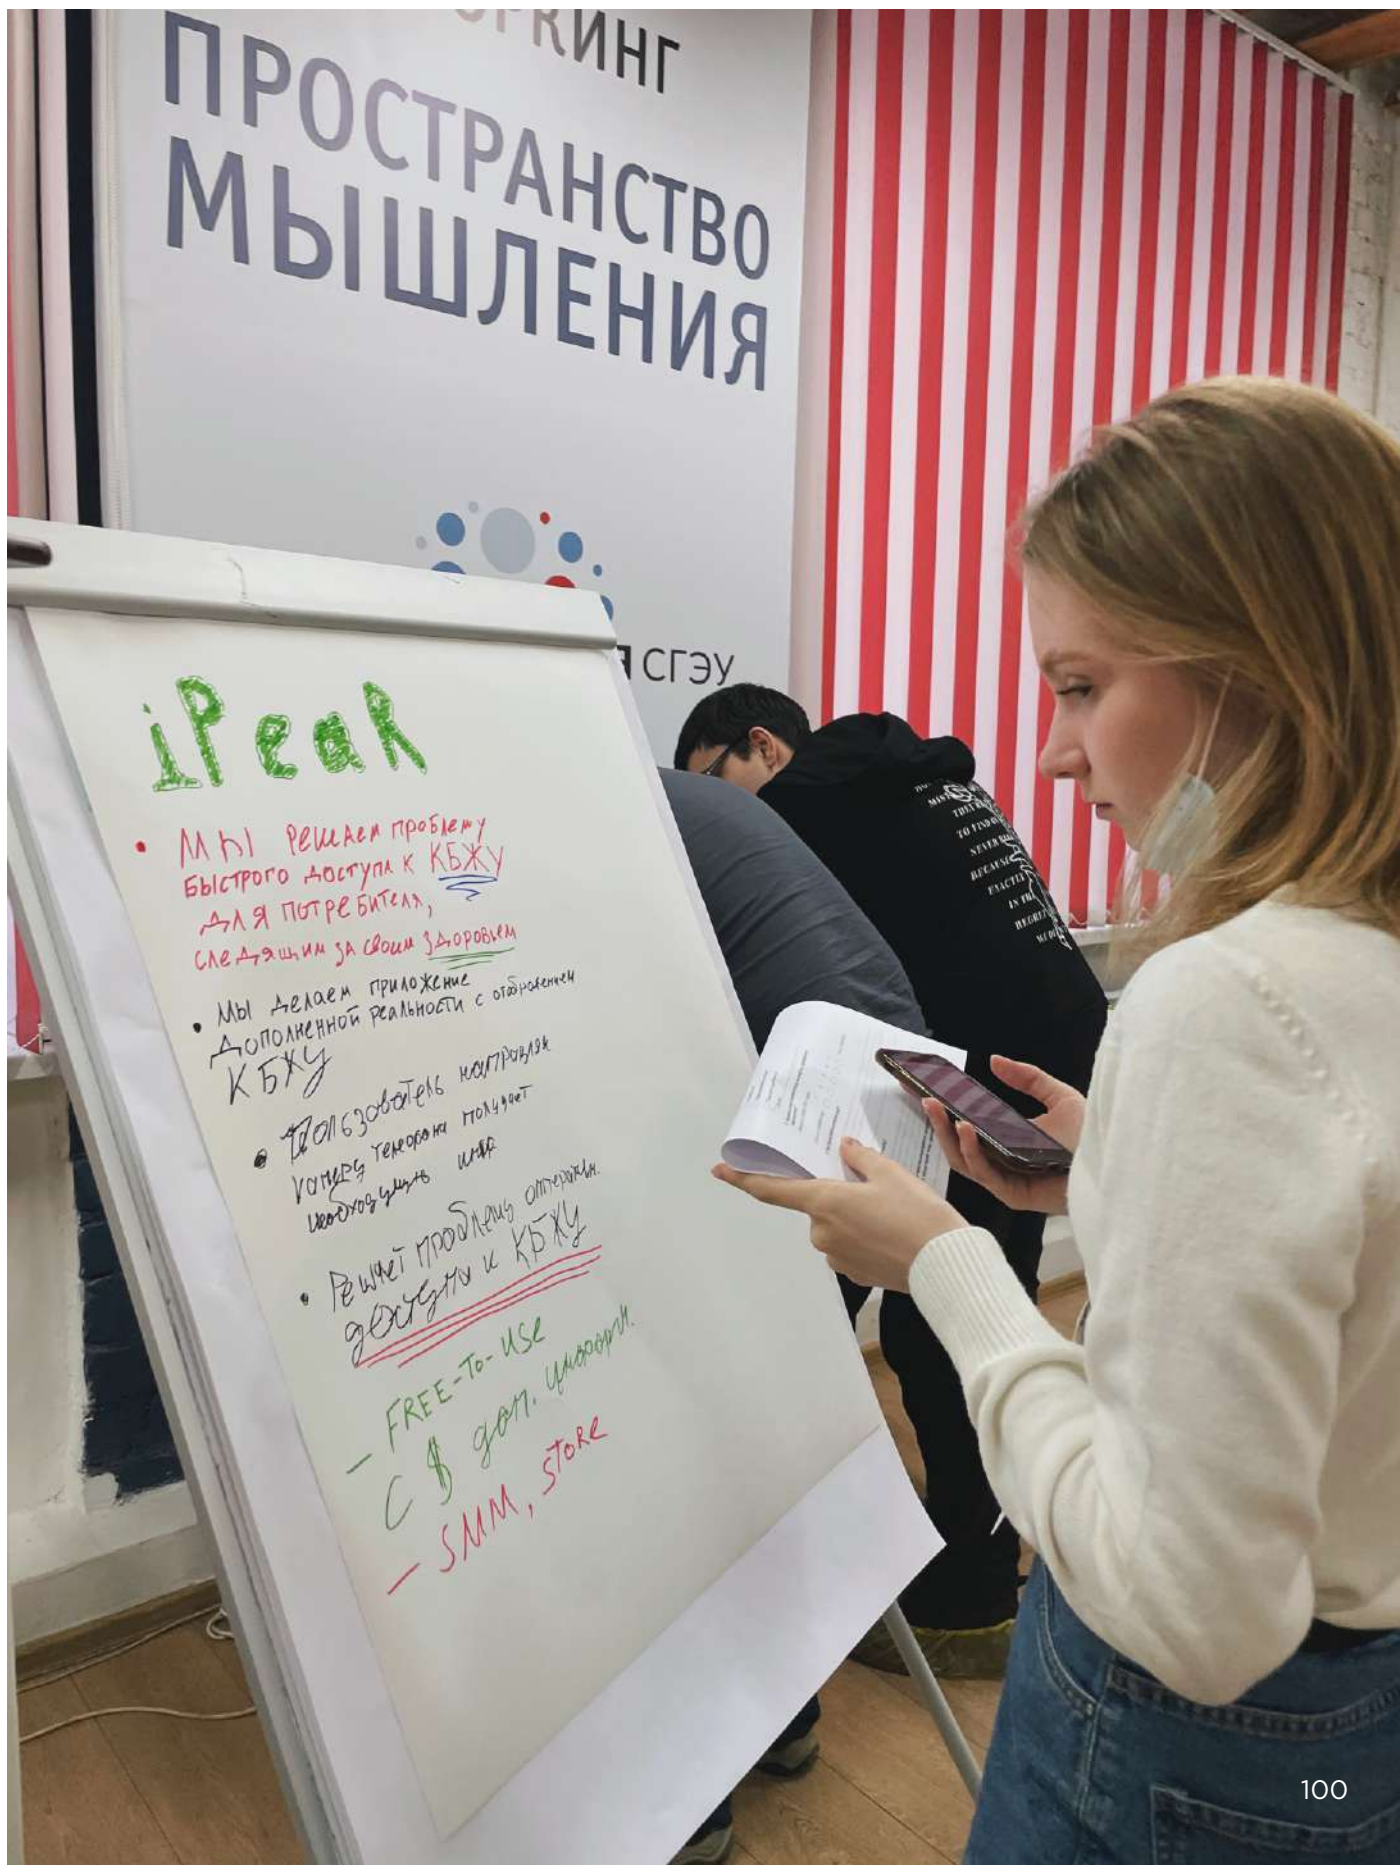 ПРОСТРАНСТВО
МЫШЛЕНИЯ
СГЭУ
iPeaR
• Мы решаем проблему
быстрого доступа к КБЖУ
для потребителя,
следящим за своим здоровьем
• Мы делаем приложение
дополненной реальности с отображением
КБЖУ
• Пользователь направляя
камеру телефона получает
необходимую инфо
• Решает проблему оперативн.
доступа к КБЖУ
– FREE-TO-USE
С $ доп. информ.
– SMM, STORE
TO FIND
NEVER
BECAUSE
EXACTLY
IN
100